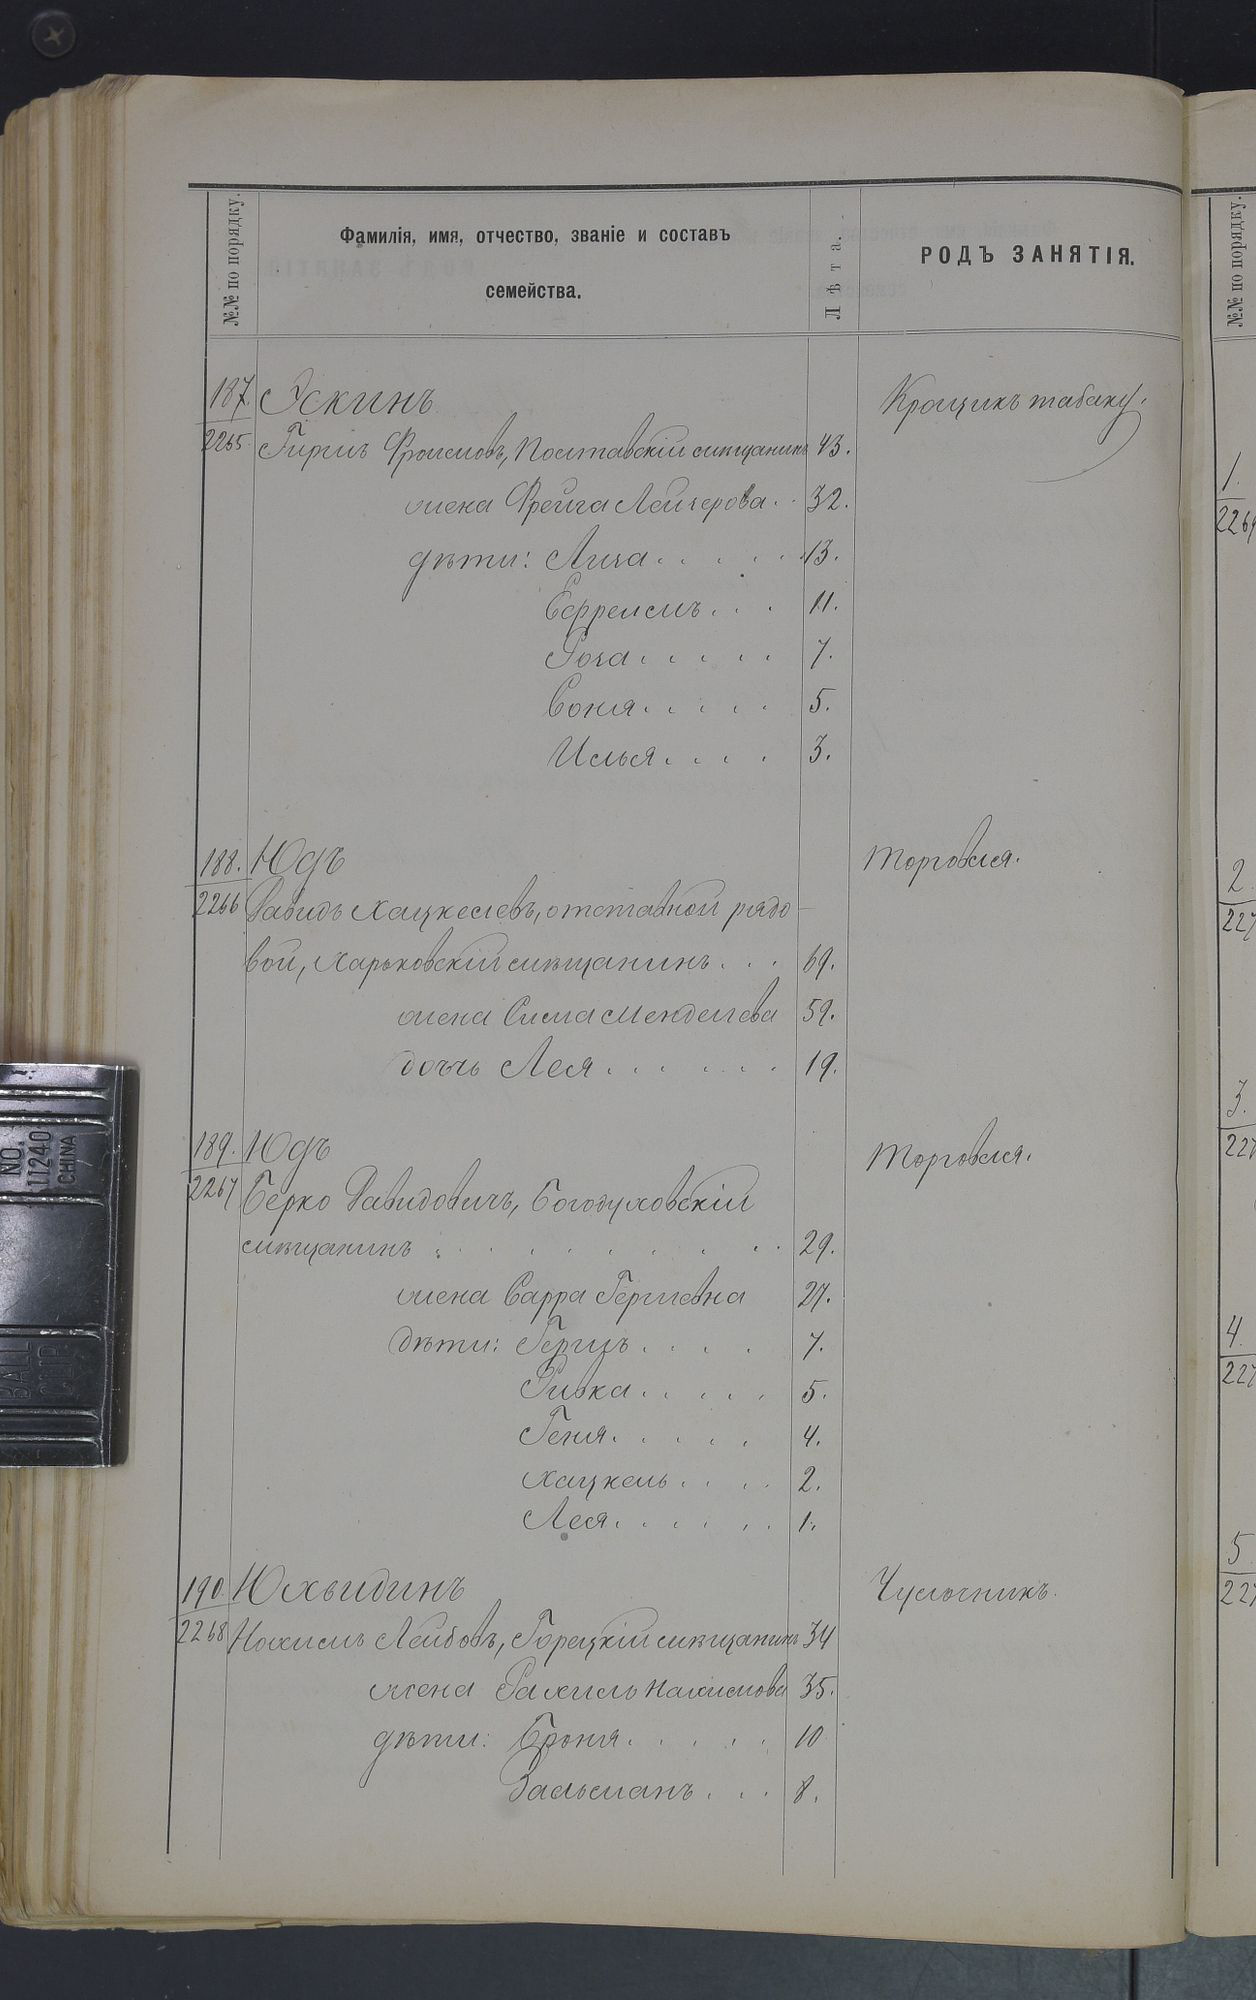 №№ по порядку.
Фамилія, имя, отчество, званіе и составъ
семейства.
Лѣта.
РОДЪ ЗАНЯТІЯ.
187. Эскинъ Крошикъ табаку.
2265. Гиршъ Фроимовъ, мѣщанинъ 43.
жена Фрейга Лейзерова . . 32.
дѣти: Лиза . . . . . 13.
Ефреимъ . . . 11.
Роза . . . . . 7.
Соня . . . . . 5.
Илья . . . . 3.
188. Юдъ Торговля.
2266 Давидъ Хацкелевъ, отставной рядо-
вой, Харьковскій мѣщанинъ . . . 69.
жена Сима Менделева 59.
дочь Лея . . . . . . 19.
189. Юдъ Торговля.
2267 Берко Давидовичъ, Богодуховскій
мѣщанинъ . . . . . . . . 29.
жена Сарра Гершевна 27.
дѣти: Герцъ . . . . 7.
Ривка . . . . . 5.
Геня . . . . . 4.
Хацкель . . . . 2.
Лея . . . . . . 1.
190. Юхвидинъ Чулочникъ.
2268 Нохимъ Лейбовъ, Горецкій мѣщанинъ 34
жена Рахиль Нахимова 35.
дѣти: Броня . . . . . 10
Зальманъ . . . 8.
№№ по порядку.
1.
2269
2.
227
3.
227
4.
227
5
227
NO.
11240
CHINA
BALL
CLIP